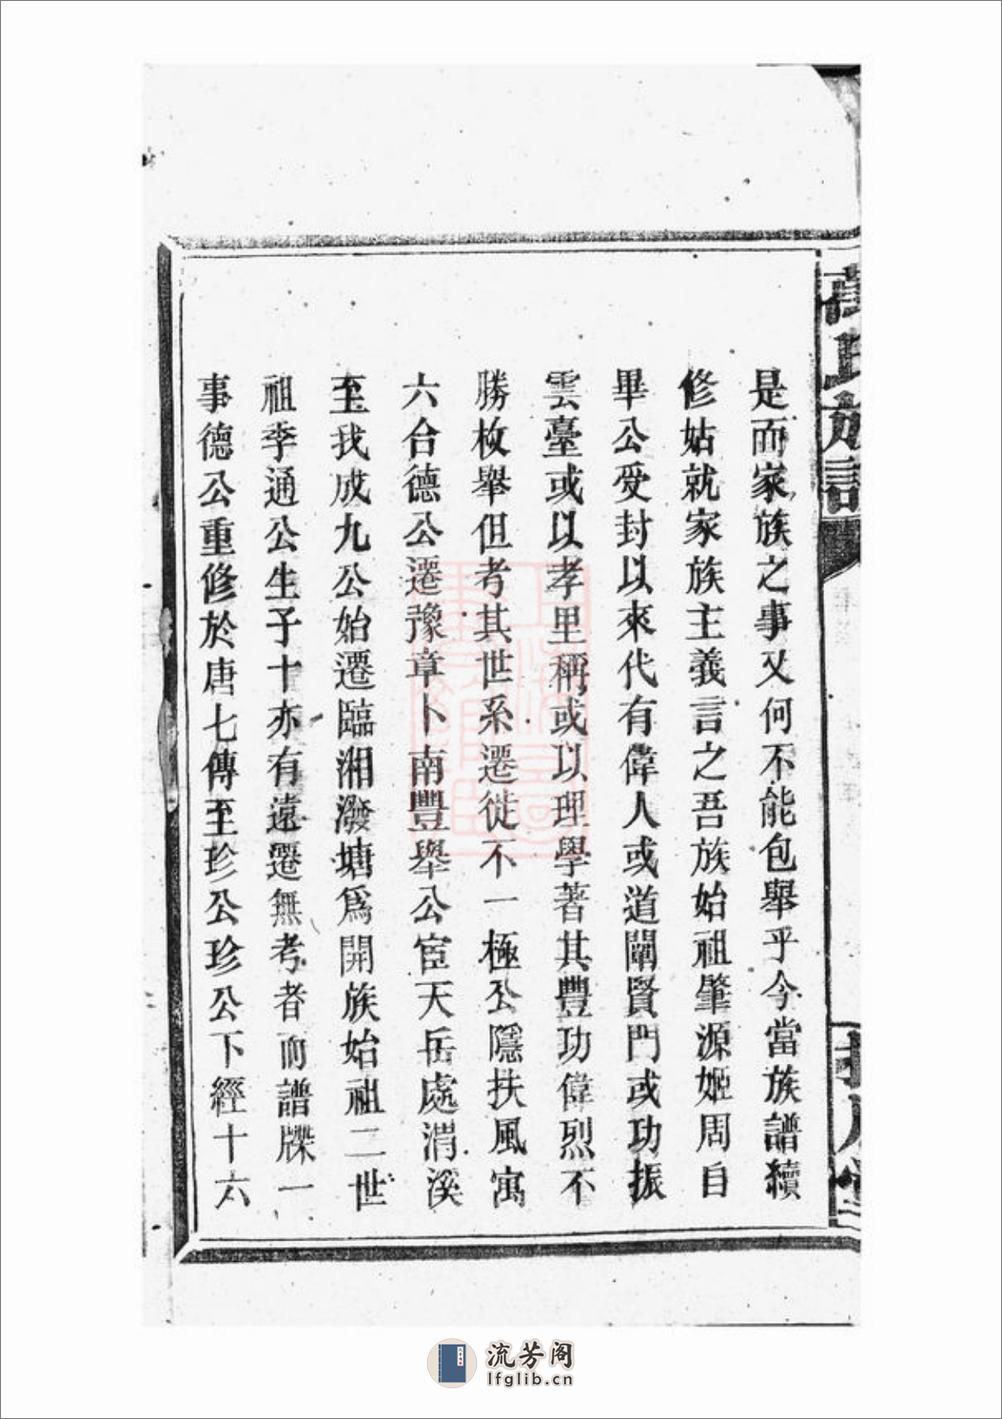 是而家族之事又何不能包舉乎今當族譜續
修姑就家族主義言之吾族始祖肇源姬周自
畢公受封以來代有偉人或道闡賢門或功振
雲臺或以孝里稱或以理學著其豐功偉烈不
勝枚舉但考其世系遷徙不一極公隱扶風寓
六合德公遷豫章卜南豐舉公宦天岳處渭溪
至我成九公始遷臨湘潑塘爲開族始祖二世
祖季通公生子十亦有遠遷無考者而譜牒一
事德公重修於唐七傳至珍公珍公下經十六
氏族譜
流芳阁
lfglib.cn